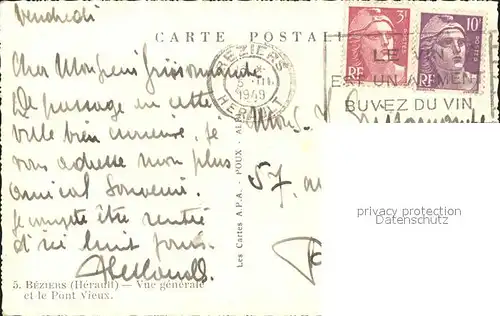 Vendredi
CARTE POSTALE
Cher Monsieur
De passage en cette
ville bien curieuse, je
vous adresse mon plus
amical souvenir.
Je compte être rentré
d'ici huit jours.
5. BÉZIERS (Hérault) — Vue générale
et le Pont Vieux.
Les Cartes A.P.A. - POUX - AL
BEZIERS
1949
HERAULT
3F
RF
POSTES
10F
RF
LE
EST UN ALIMENT
BUVEZ DU VIN
Mons.
57,
privacy protection
Datenschutz